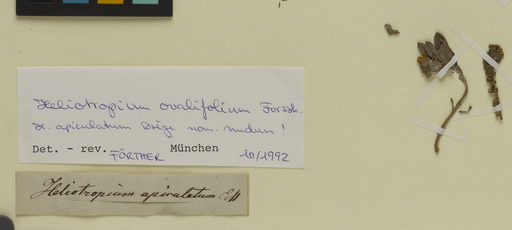 Heliotropium ovalifolium Forssk.
H. apiculatum Drège nom. nudum!
Det. - rev. FÖRTHER München 10/1992
Heliotropium apiculatum E M